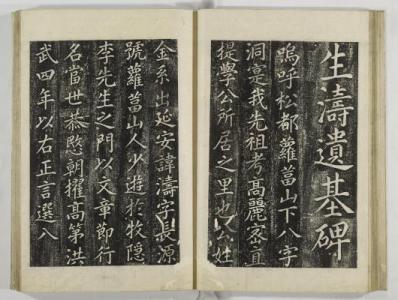 生濤遺基碑
嗚呼松都蘿葍山下八字
洞寔我先祖考高麗密直
提學公所居之里也公姓
金系出延安諱濤字長源
號蘿葍山人少遊於牧隱
李先生之門以文章節行
名當世恭愍朝擢高第洪
武四年以右正言選入